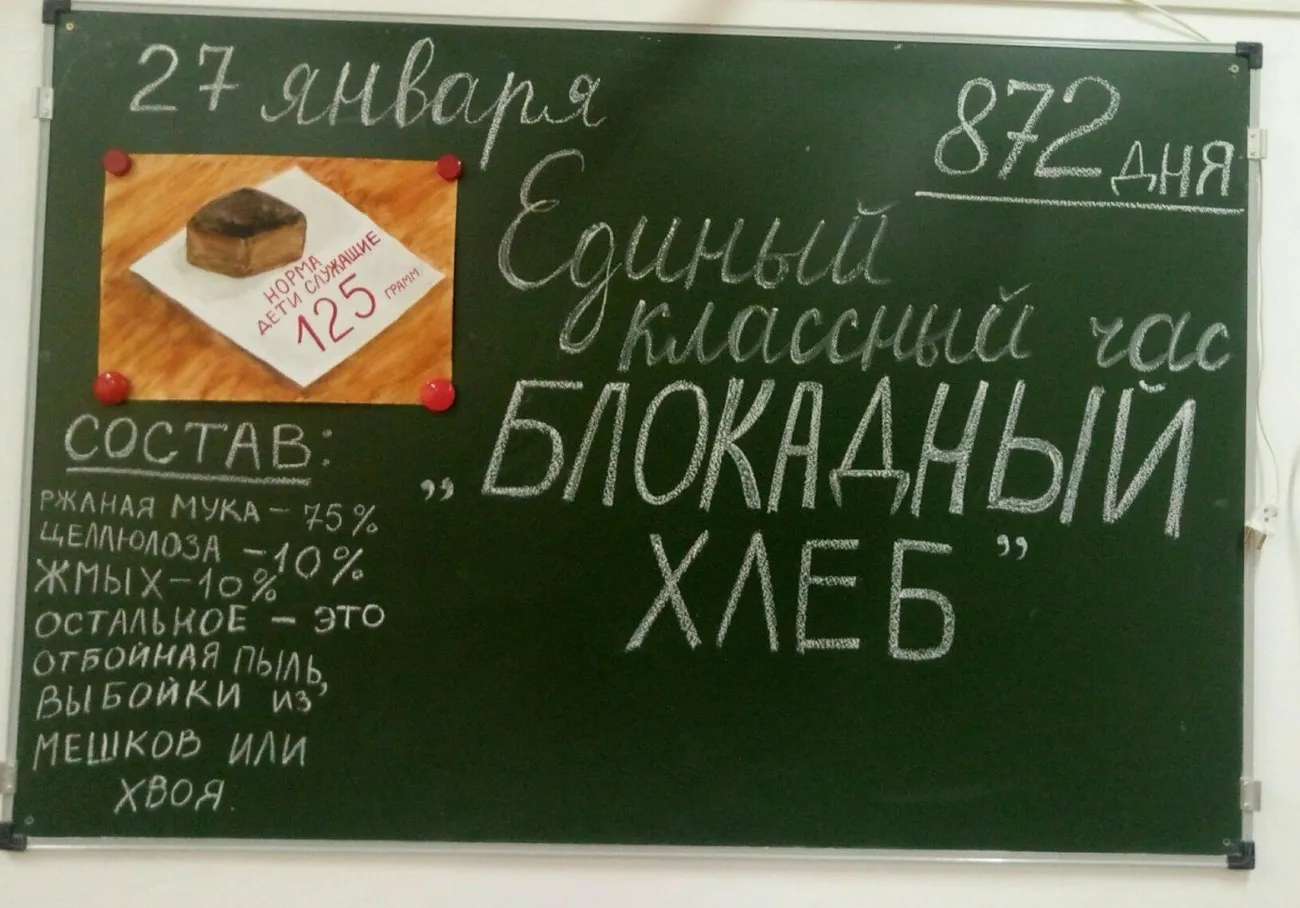 27 января
872 дня
НОРМА
ДЕТИ СЛУЖАЩИЕ
125 ГРАММ
Единый
классный час
„БЛОКАДНЫЙ
ХЛЕБ”
СОСТАВ:
РЖАНАЯ МУКА – 75%
ЦЕЛЛЮЛОЗА – 10%
ЖМЫХ – 10%
ОСТАЛЬНОЕ – ЭТО
ОТБОЙНАЯ ПЫЛЬ,
ВЫБОЙКИ ИЗ
МЕШКОВ ИЛИ
ХВОЯ.